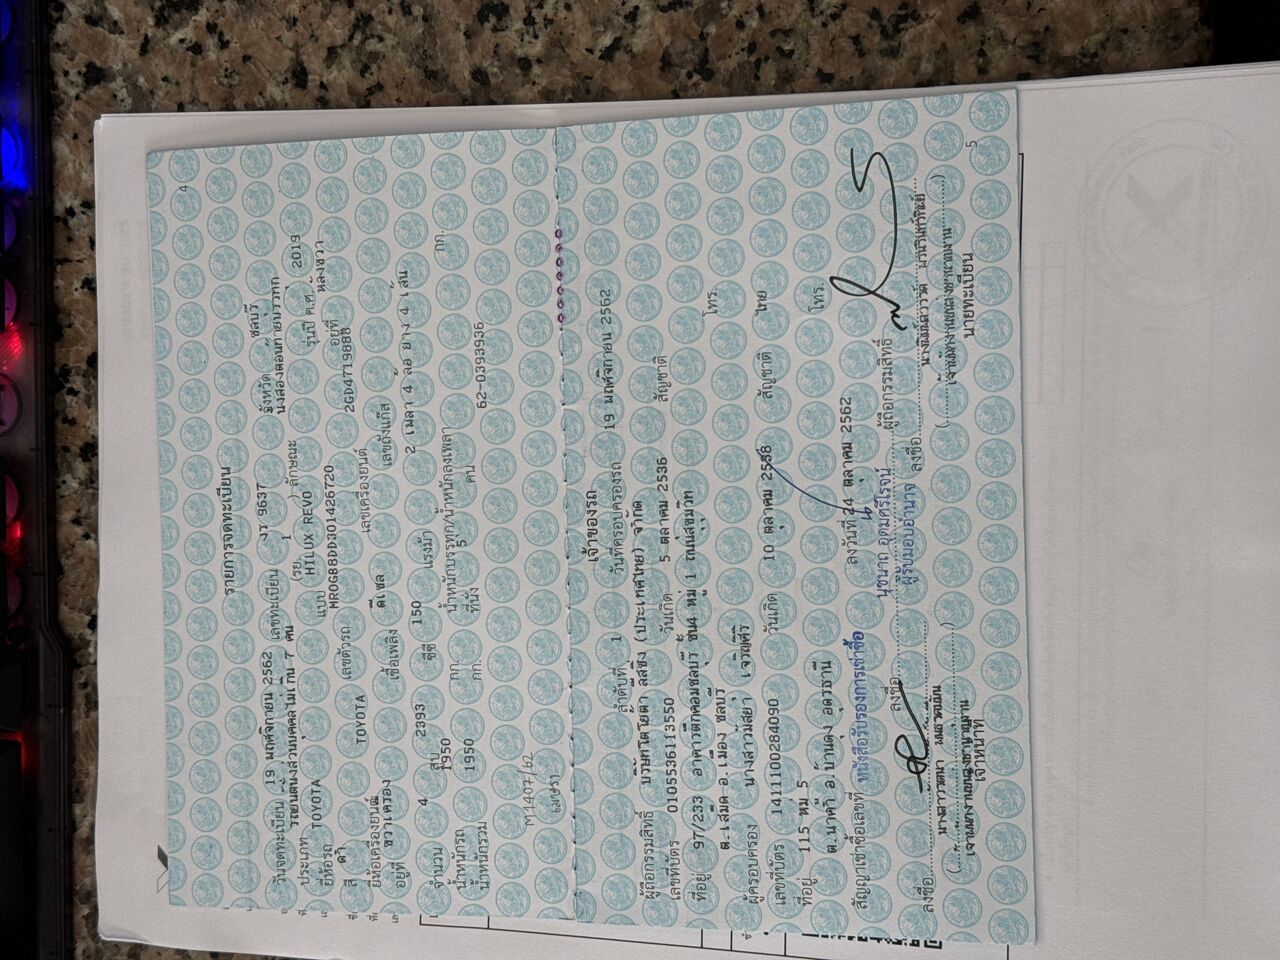 4
รายการจดทะเบียน
วันจดทะเบียน 19 พฤศจิกายน 2562 เลขทะเบียน งา 9637 จังหวัด ชลบุรี
ประเภท รถยนต์นั่งส่วนบุคคลไม่เกิน 7 คน (รย. 1 ) ลักษณะ นั่งสองตอนท้ายบรรทุก
ยี่ห้อรถ TOYOTA แบบ HILUX REVO รุ่นปี ค.ศ. 2019
สี ดำ เลขตัวรถ MR0GB8DD301426720 อยู่ที่ หลังขวา
ยี่ห้อเครื่องยนต์ TOYOTA เลขเครื่องยนต์ 2GD4719888
อยู่ที่ ขวาเครื่อง เชื้อเพลิง ดีเซล เลขถังแก๊ส
จำนวน 4 สูบ 2393 ซีซี 150 แรงม้า 2 เพลา 4 ล้อ ยาง 4 เส้น
น้ำหนักรถ 1950 กก. น้ำหนักบรรทุก/น้ำหนักลงเพลา กก.
น้ำหนักรวม 1950 กก. ที่นั่ง 5 คน
62-0393936
M1407/62
เจ้าของรถ
ลำดับที่ 1 วันที่ครอบครองรถ 19 พฤศจิกายน 2562
ผู้ถือกรรมสิทธิ์ บริษัทโตโยต้า ลีสซิ่ง (ประเทศไทย) จำกัด
เลขที่บัตร 0105536113550 วันเกิด 5 ตุลาคม 2536 สัญชาติ
ที่อยู่ 97/233 อาคารตึกคอมชลบุรี ชั้น4 หมู่ 1 ถนนสุขุมวิท
ต.เสม็ด อ.เมือง ชลบุรี โทร.
ผู้ครอบครอง นางสาวมัสยา
เลขที่บัตร 1411100284090 วันเกิด 10 ตุลาคม 2538 สัญชาติ ไทย
ที่อยู่ 115 หมู่ 5
ต.นาคำ อ.บ้านดุง อุดรธานี โทร.
สัญญาเช่าซื้อเลขที่ หนังสือรับรองการเช่าซื้อ ลงวันที่ 24 ตุลาคม 2562
ลงชื่อ นุชนาถ อุดมศรีโรจน์ ผู้ถือกรรมสิทธิ์
ผู้รับมอบอำนาจ
ลงชื่อ
เจ้าหน้าที่
ลงชื่อ
นายทะเบียน
5